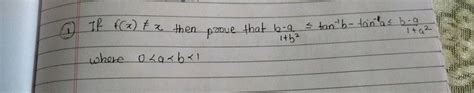 ① If f(x) ≠ x then prove that b-a/1+b² ≤ tan⁻¹b - tan⁻¹a ≤ b-a/1+a²
where 0<a<b<1